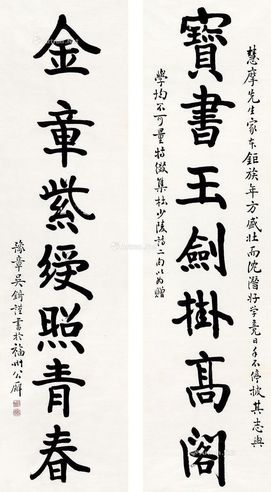 慧摩先生家本鉅族年方盛壯而沈潛好學竟日手不停披其志與
寶書玉劍掛高閣
學均不可量特徵集杜少陵詩二句以為贈
金章紫綬照青春
豫章吳錡謹書於福州公廨